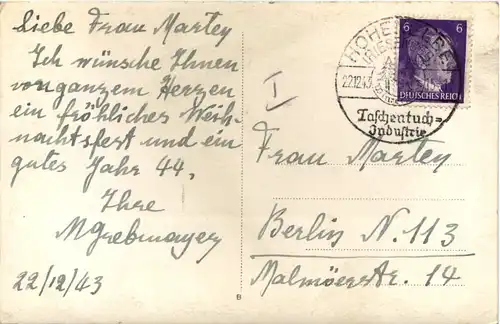 Liebe Frau Martey
Ich wünsche Ihnen
von ganzem Herzen
ein fröhliches Weih-
nachtsfest und ein
gutes Jahr 44,
Ihre
22/12/43
I
22.12.43
Taschentuch=
Industrie
6 6
DEUTSCHES REICH
Frau Martey
Berlin N. 113
Malmöerstr. 14
B